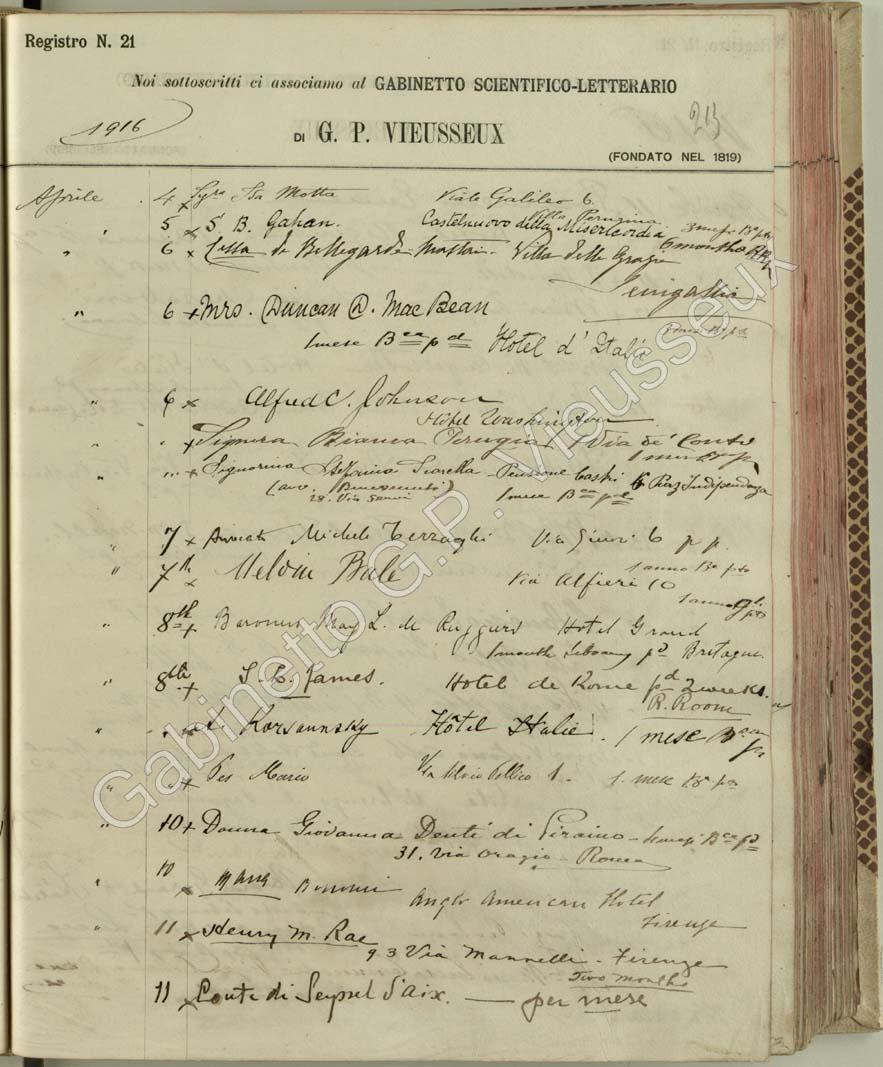 Registro N. 21
Noi sottoscritti ci associamo al GABINETTO SCIENTIFICO-LETTERARIO
213
1916
DI G. P. VIEUSSEUX
(FONDATO NEL 1819)
Aprile 4 x Sgra Ida Motta Viale Galileo 6
Villa Perugina
5 x S. B. Gahan. Castelnuovo della Misericordia 3 mesi Ba pto
6 x di Bellegarde Villa delle Grazie 6 months
Senigallia
6 x Mrs. Duncan D. MacBean
1 mese Bca pd Hotel d'Italie
6 x Alfred C. Johnson
Hôtel Washington
" x Signora Bianca Perugia Via de' Conti
1 mese
" x Signorina Pensione Castri 6 Piaz Indipendenza
(avv. Benevento)
28. Via 1 mese Bca pd
7 x Avvocato Michele Terzaghi Via Giusti 6 p p.
1 anno Ba pto
7th x Melvin Bale Via Alfieri 10
1 anno
8th x Baroness May L. de Ruggiero Hotel Grand
1 month Library pd Bretagne.
8th x S. B. James. Hotel de Rome pd 2 weeks.
R. Room
" x Korsunsky Hôtel Italie. 1 mese
" x Pes Mario Via Silvio Pellico 1. 1. mese Ba pto
10 x Donna Giovanna Denti di Piraino Bca pd
31. Via Orazio - Roma
10 Anglo American Hotel
Firenze
11 x Henry M. Rae
93 Via Mannelli - Firenze
Two months
11 x Conte di Seyssel d'Aix. — per mese
Gabinetto G.P. Vieusseux